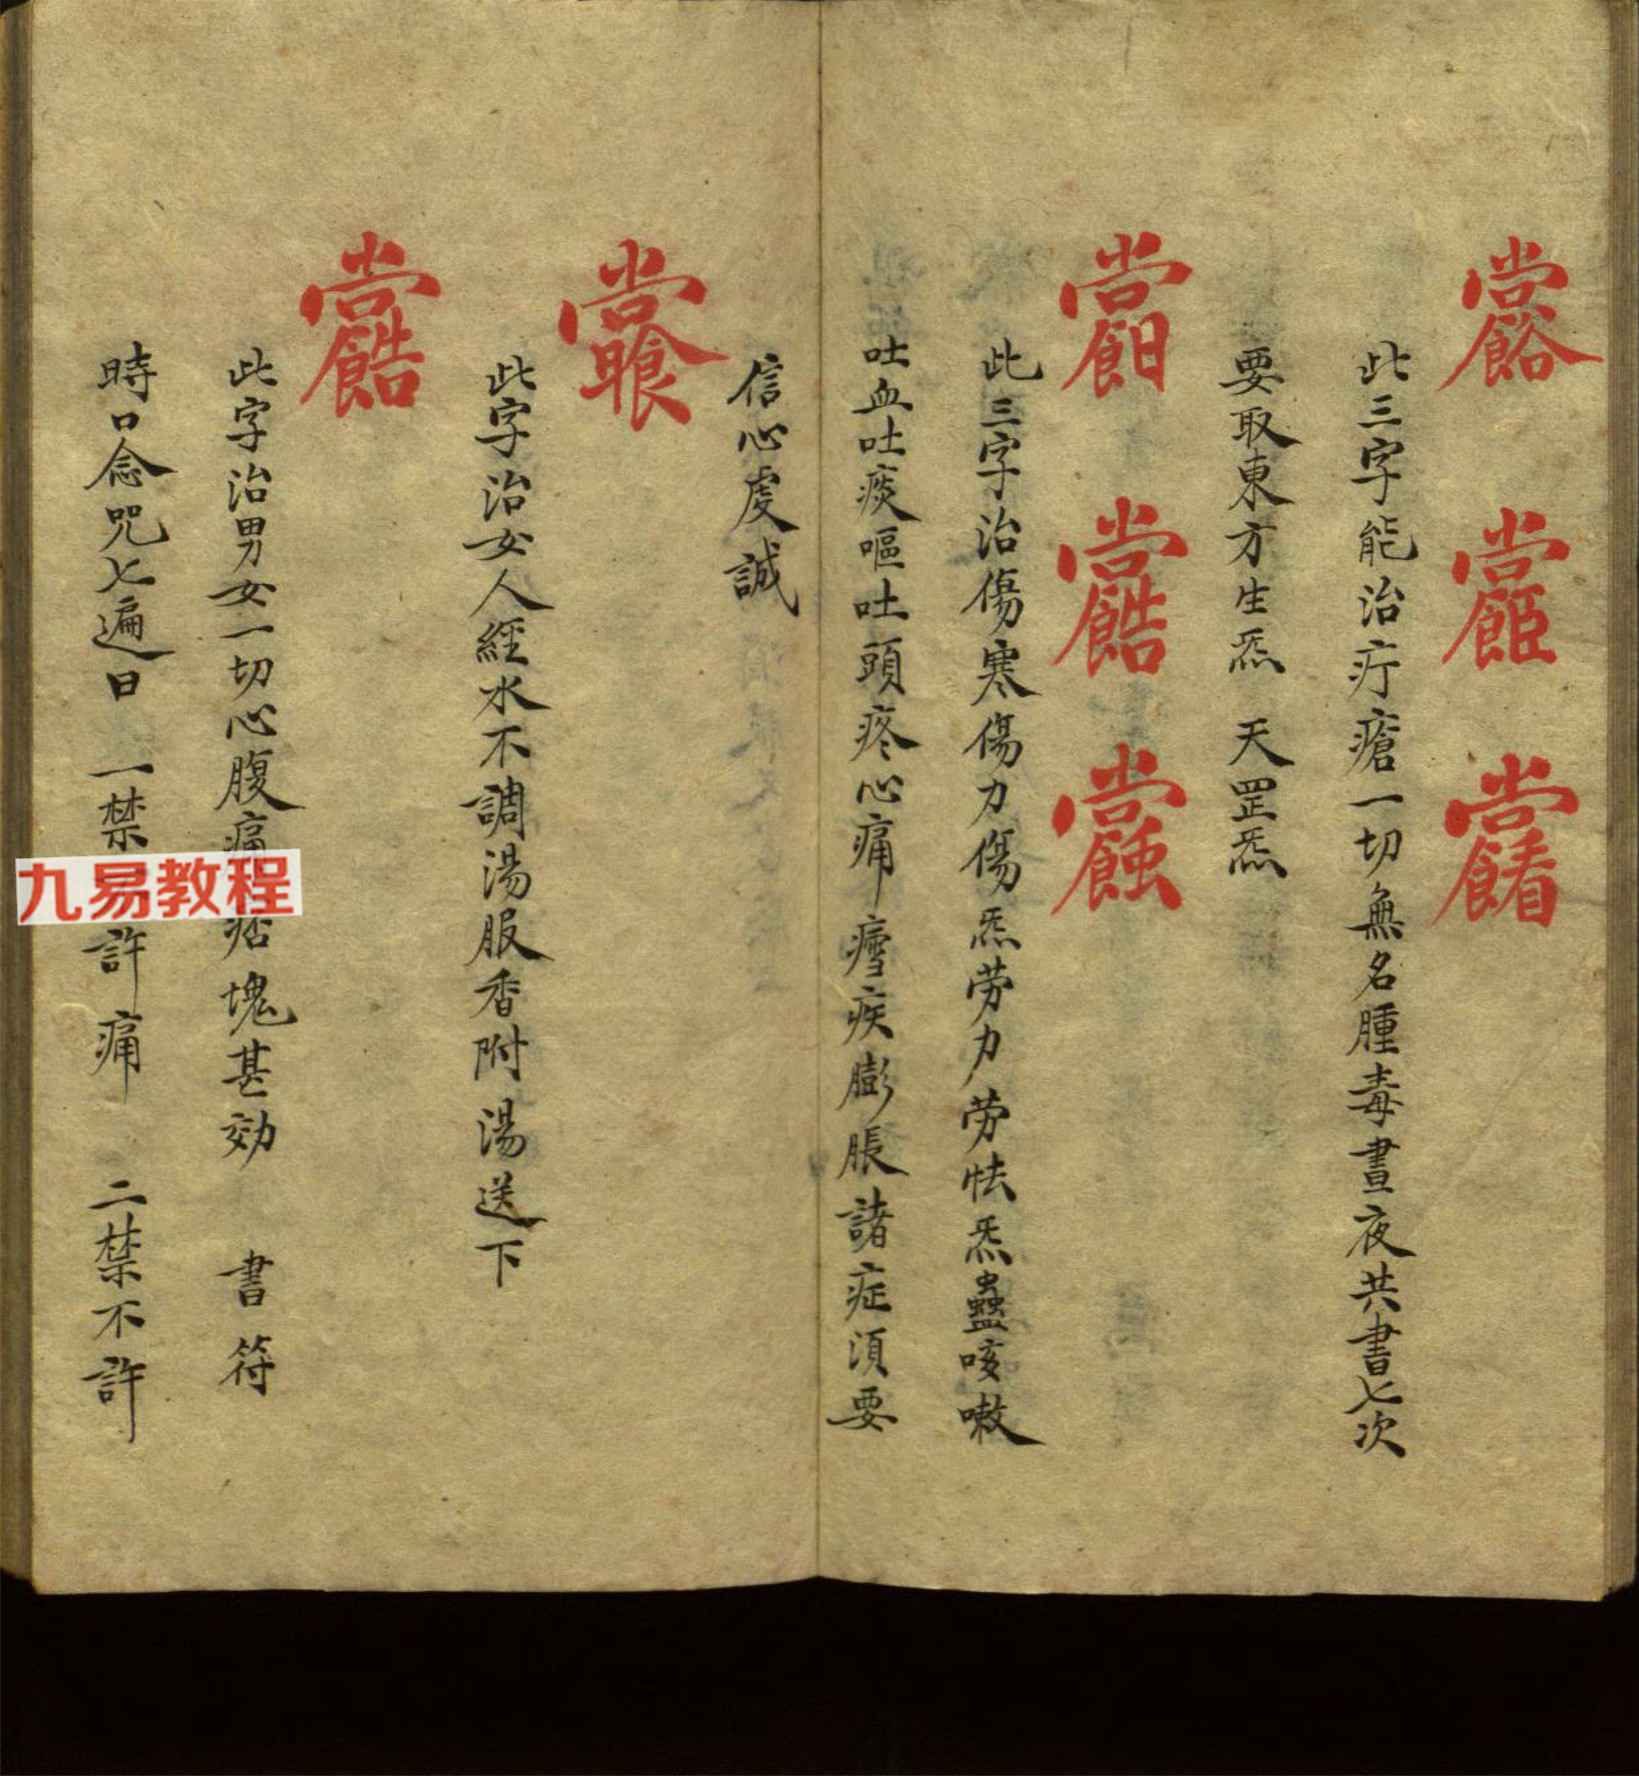 此三字能治疔瘡一切無名腫毒晝夜共書七次
要取東方生炁 天罡炁
此三字治傷寒傷力傷炁劳力劳怯炁蠱咳嗽
吐血吐痰嘔吐頭疼心痛疾膨脹諸症須要
信心虔誠
此字治女人經水不調湯服香附湯送下
此字治男女一切心腹痛痞塊甚効 書符
時口念咒七遍曰 一禁許痛 二禁不許
九易教程